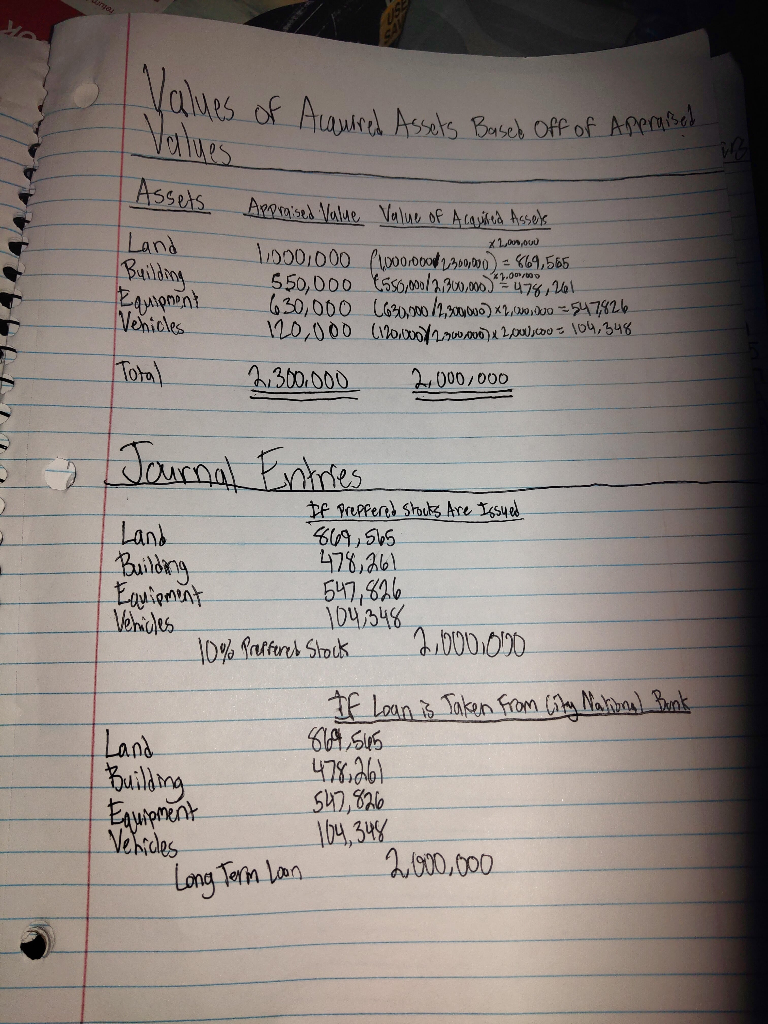 Values of Acquired Assets Based Off of Appraised
Values
Assets Appraised Value Value of Acquired Assets
Land 1,000,000 (1,000,000/2,300,000) x 2,000,000 = 869,565
Building 550,000 (550,000/2,300,000) x 2,000,000 = 478,261
Equipment 630,000 (630,000/2,300,000) x 2,000,000 = 547,826
Vehicles 120,000 (120,000/2,300,000) x 2,000,000 = 104,348
Total 2,300,000 2,000,000
Journal Entries
If Preffered Stocks Are Issued
Land 869,565
Building 478,261
Equipment 547,826
Vehicles 104,348
10% Preffered Stock 2,000,000
If Loan is Taken From City National Bank
Land 869,565
Building 478,261
Equipment 547,826
Vehicles 104,348
Long Term Loan 2,000,000